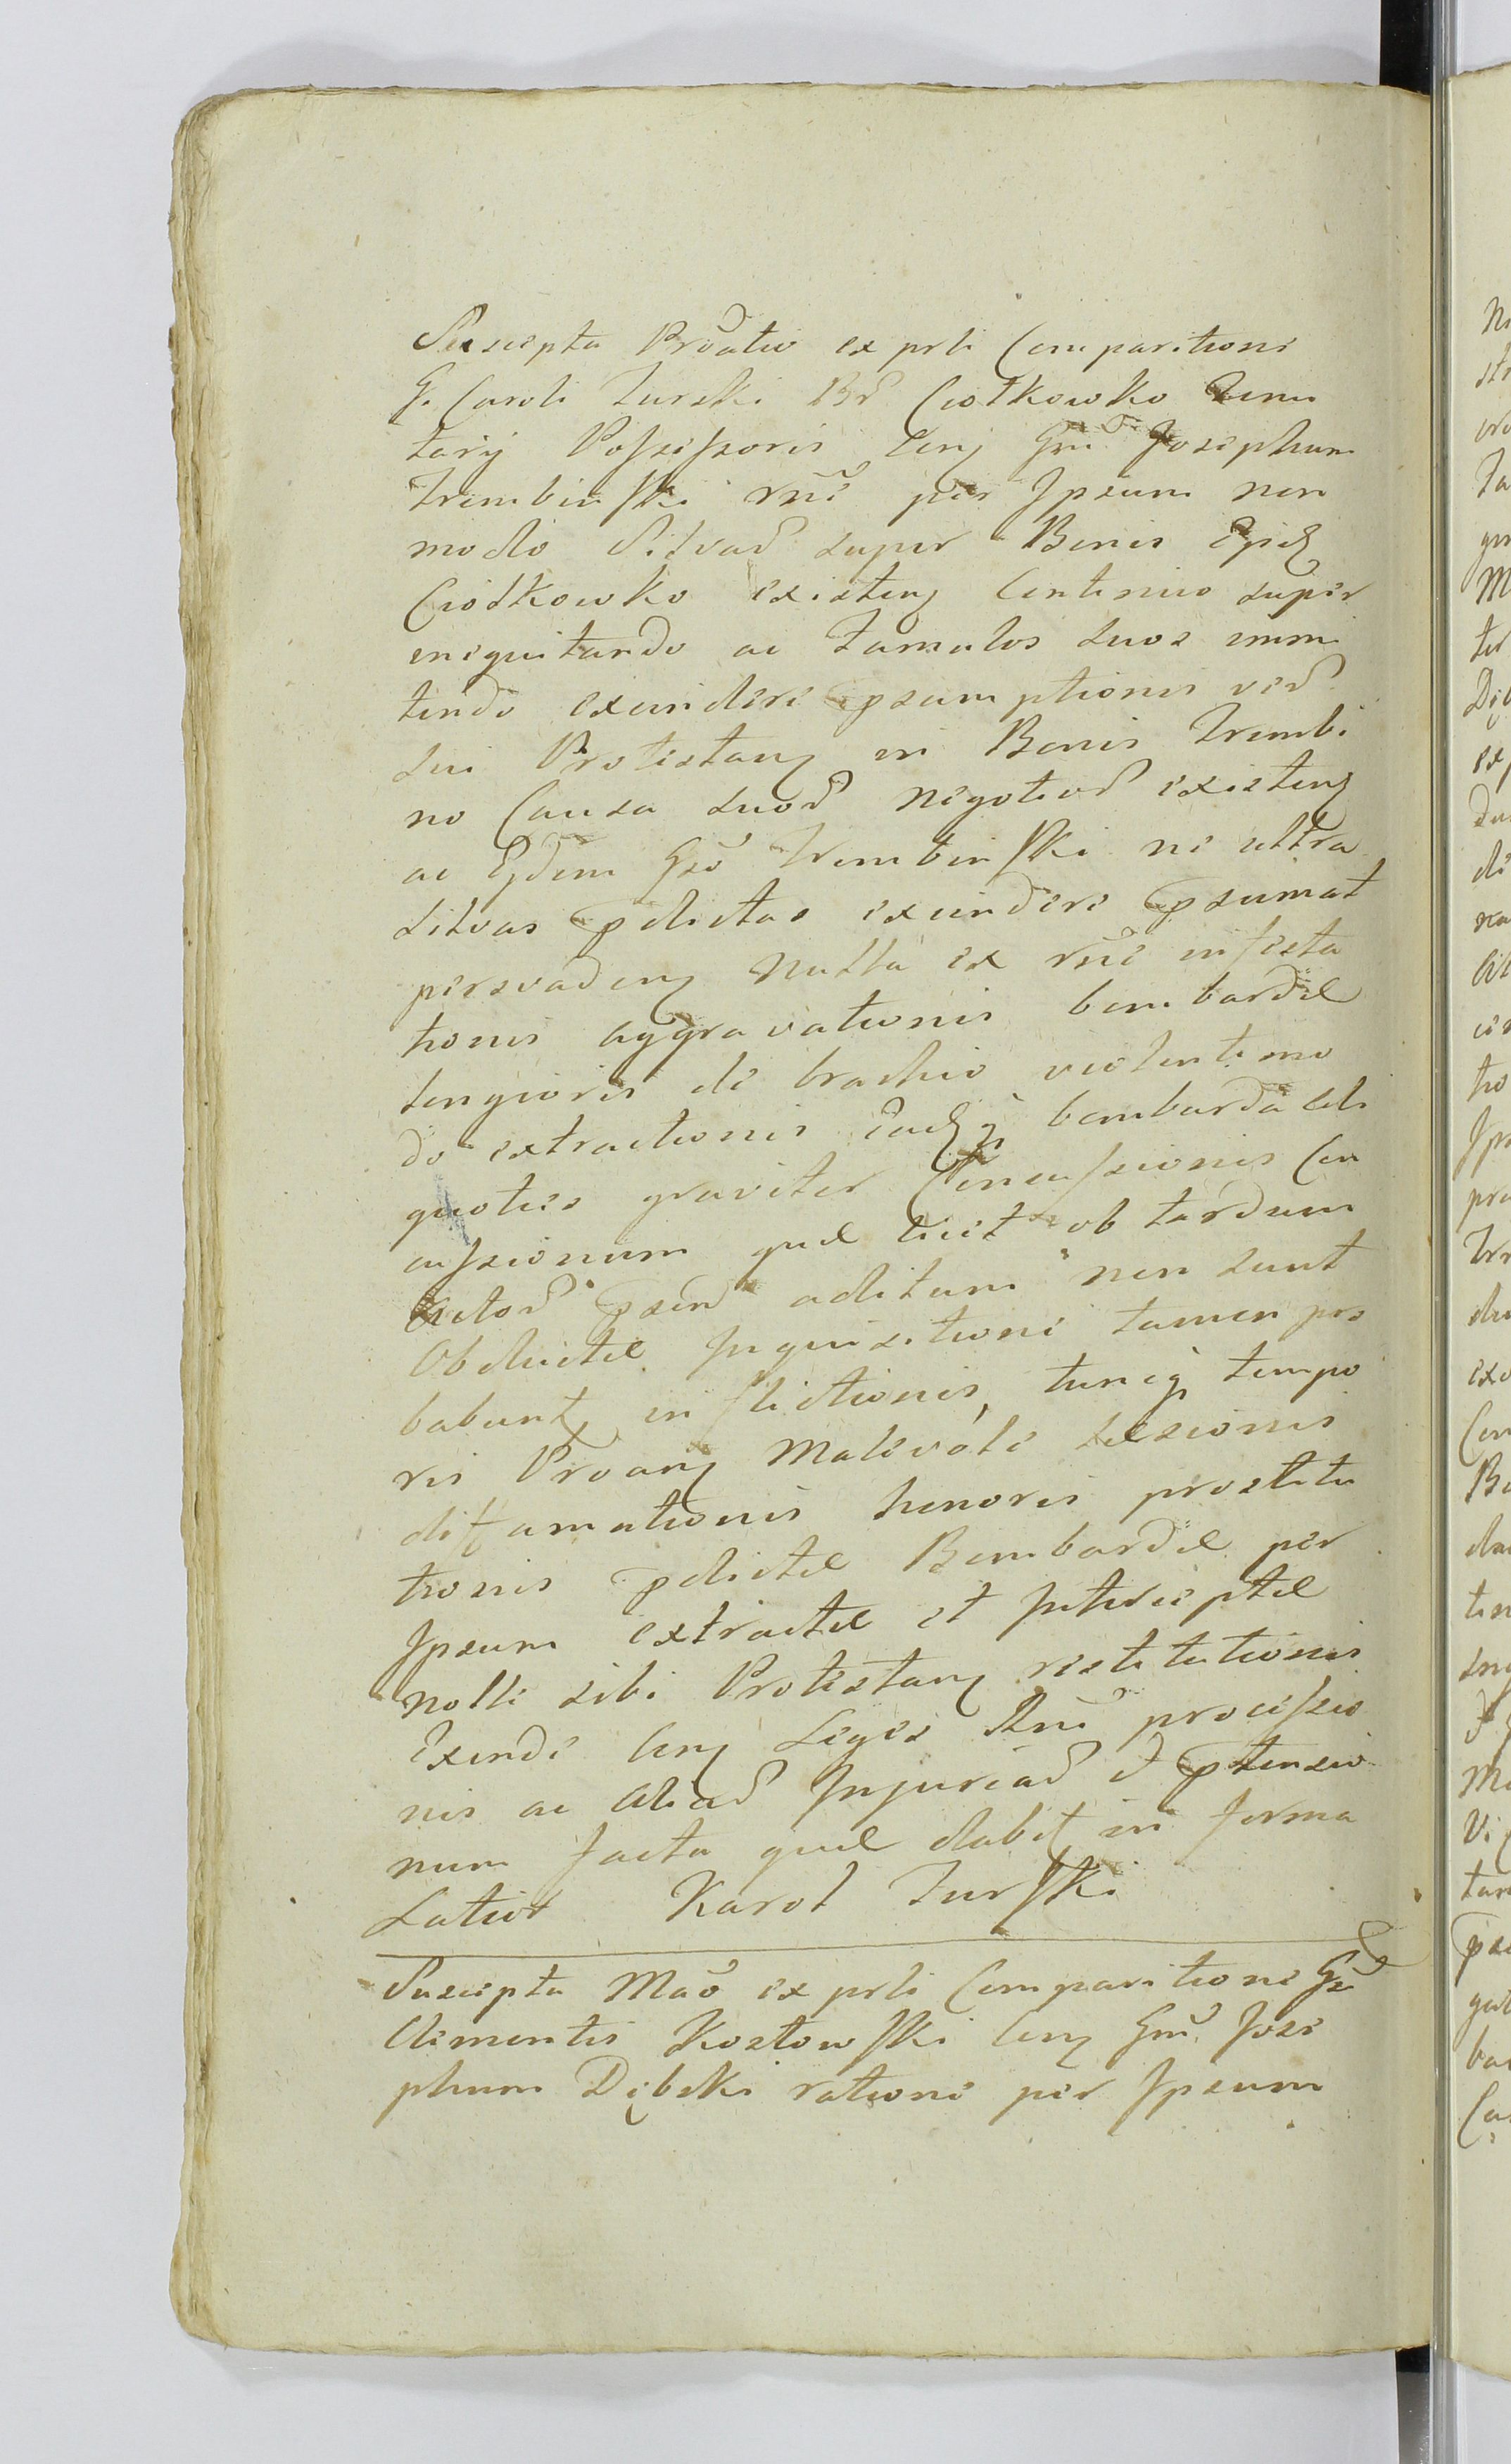 Suscepta Prõatio ex prti Comparitione
G. Caroli Turski Br̃ Ciołkowko Tenu
tarij Possessoris Cen̄ Gm̃ Josephum
Trembinski rñe per Ipsum non
modo Silvar̃ super Bonis Ejusd
Ciołkowko existen̄ Continuo super
inequitando ac Famulos suos immi
tendo excindere p̃sumptionis ver̃
sui Protestan̄ in Bonis Trembi
no Causa suor̃ negotior̃ existen̄
ac Eũdem Gsõ Trembinski ne ultra
silvas p̃dictas excindere p̃sumat
persvaden̄ nulla ex rñe infesta
tionis aggravationis bombardæ
longioris de brachio violento mo
do extractionis Eadq̃ bombarda ali
quoties graviter Concussionis Con
cussionum quæ licet ob tardum
Actor̃ p̃sen̄ aditum non sunt
Obductæ Inquisitione tamen pro
babunt̃ inflictionis, tuncq̃ tempo
ris Proan̄ Malevole læsionis
diffamationis honoris prostitu
tionis p̃dictæ Bombardæ per
Ipsum extractæ et Interceptæ
nolle sibi Protestan̄ restitutionis
Exinde Con̄ Leges Rnĩ processio
nis ac aliar̃ Injuriar̃ et p̃tensio
num facta quæ dabit̃ in forma
Latior̃ Karol Turski
Suscepta Maõ ex prti Comparitione Gsĩ
Clementis Kozłowski Con̄ Gm̃ Jose
phum Dębski ratione per Ipsum